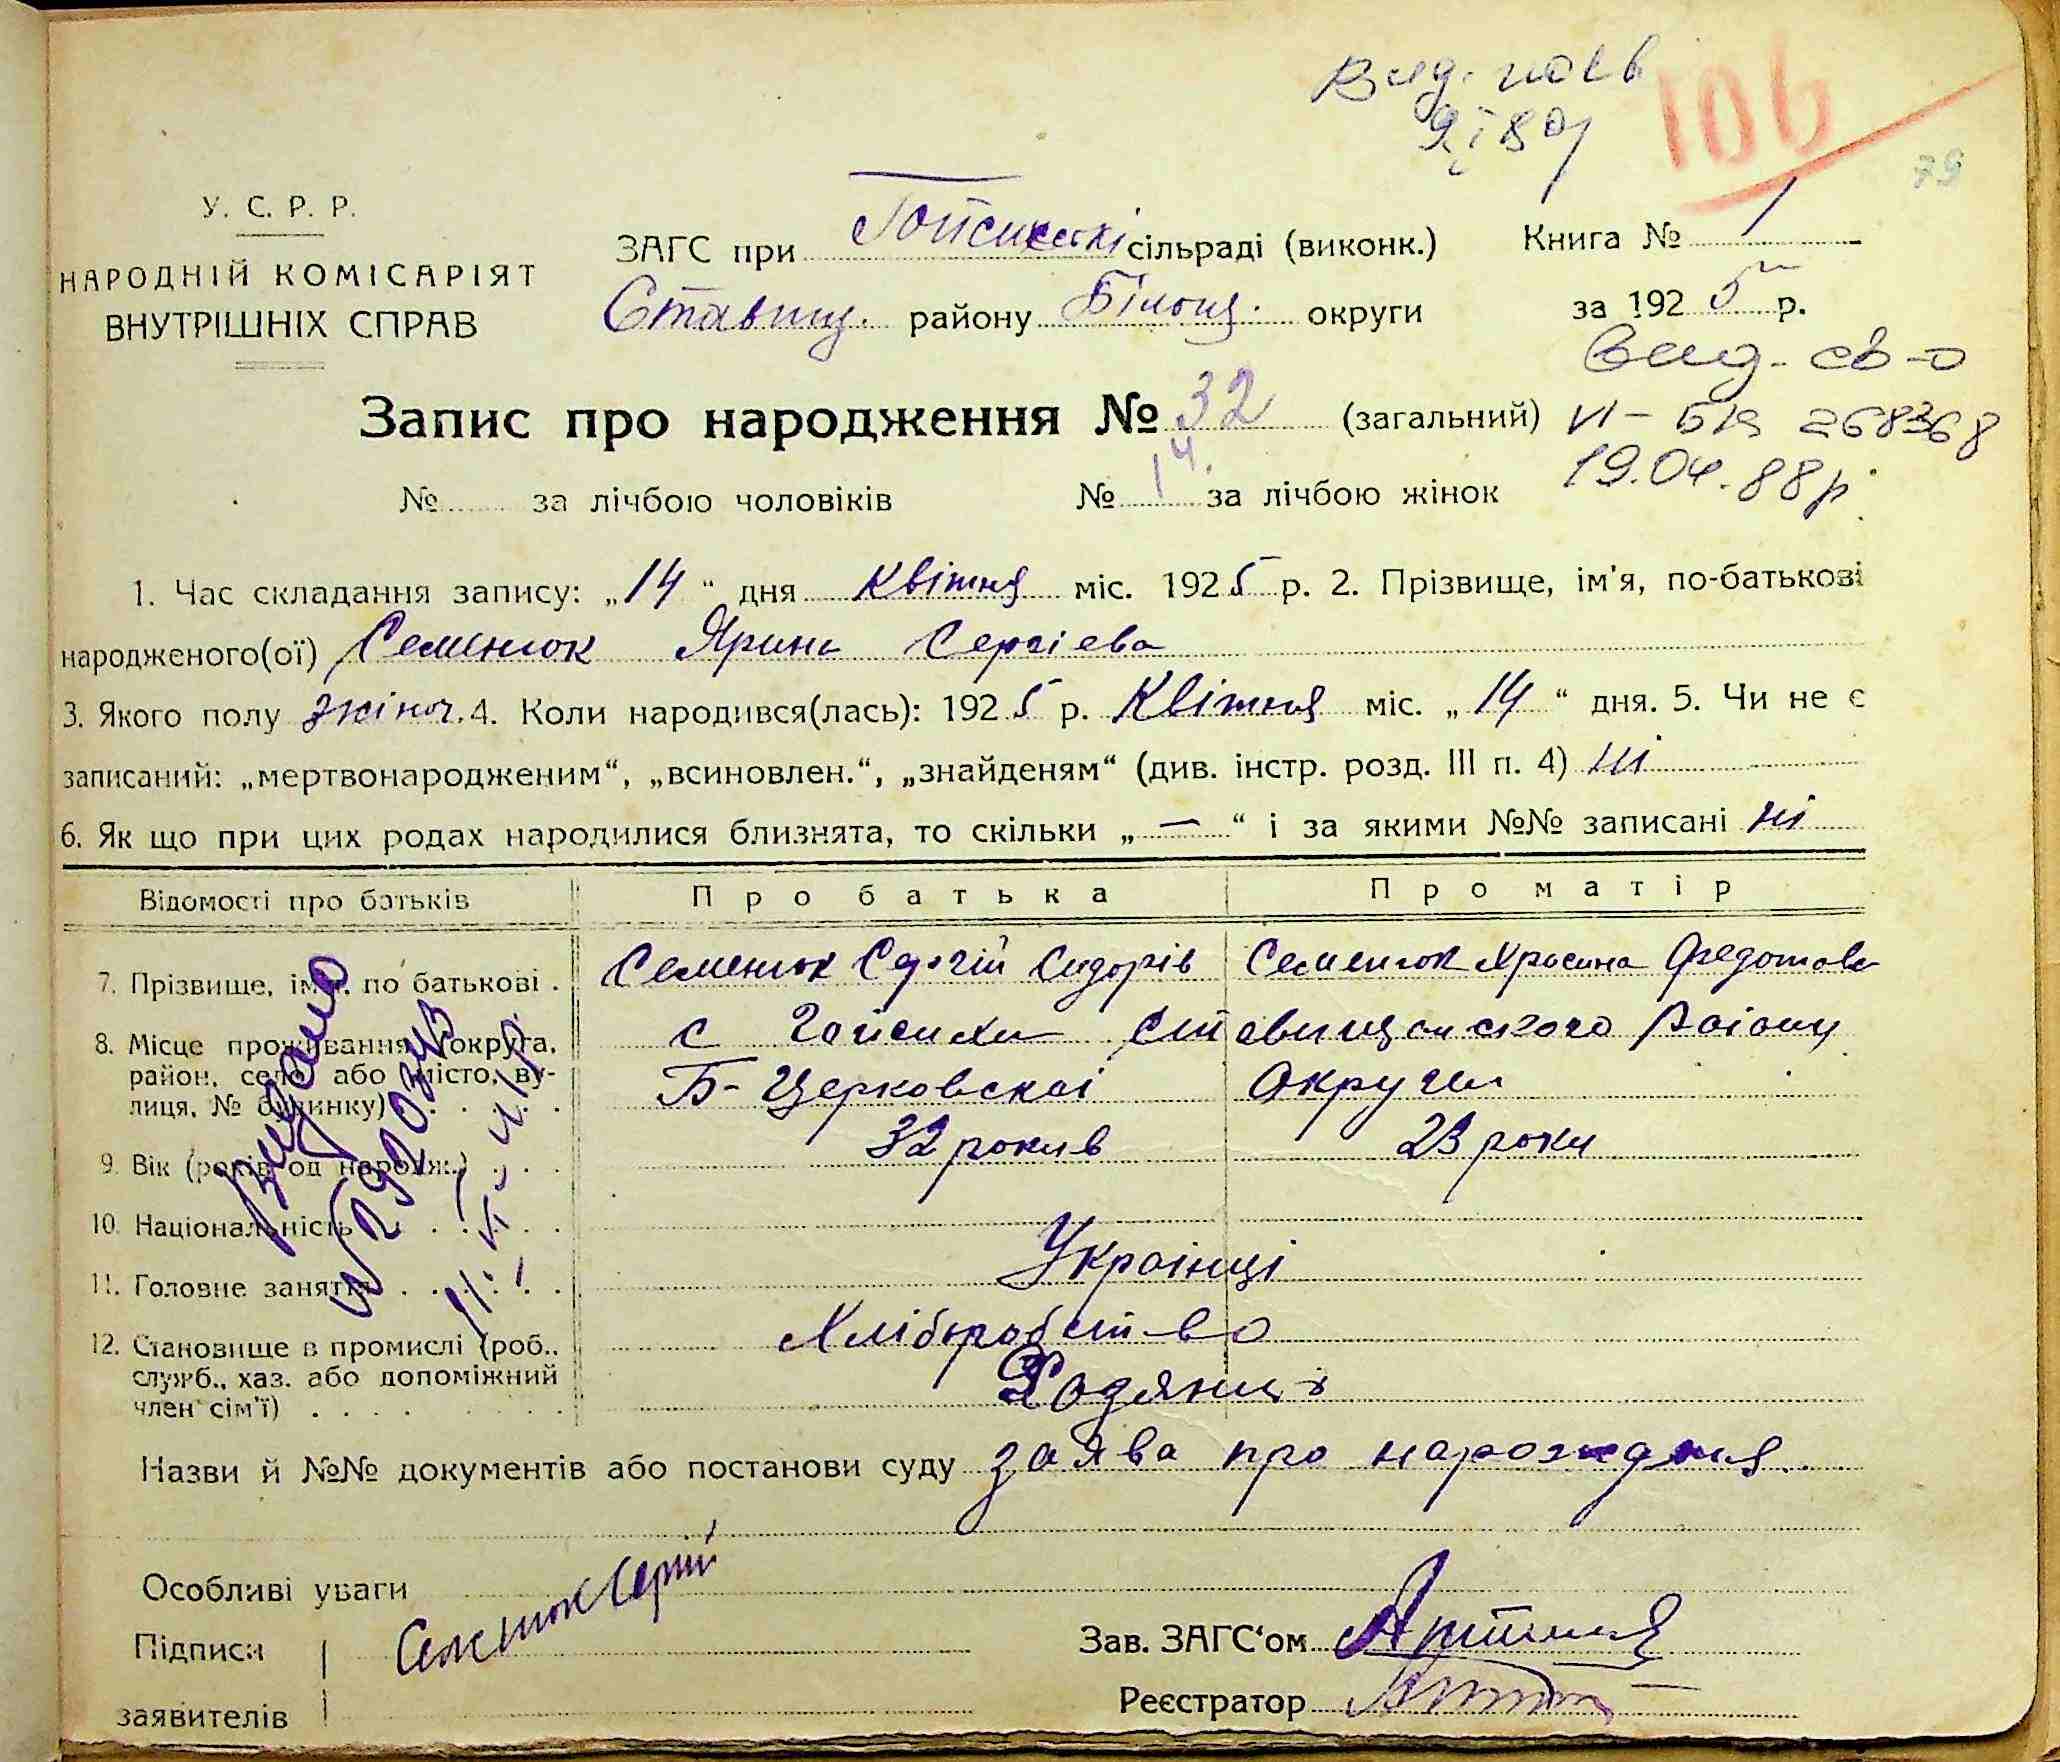 Вид. пов
106
79
У. С. Р. Р.
НАРОДНІЙ КОМІСАРІЯТ
ВНУТРІШНІХ СПРАВ
ЗАГС при Гойсинські сільраді (виконк.) Книга № 1
Ставищ. району Білоц. округи за 1925 р.
Вид. св-о
VI-БК 268368
19.04.88р.
Запис про народження № 32 (загальний)
№ за лічбою чоловіків № 14. за лічбою жінок
1. Час складання запису: „14“ дня Квітня міс. 1925 р. 2. Прізвище, ім'я, по-батькові
народженого(ої) Семенюк Ярина Сергіева
3. Якого полу жіноч. 4. Коли народився(лась): 1925 р. Квітня міс. „14“ дня. 5. Чи не є
записаний: „мертвонародженим“, „всиновлен.“, „знайденям“ (див. інстр. розд. III п. 4) ні
6. Як що при цих родах народилися близнята, то скільки „—“ і за якими №№ записані ні
Відомості про батьків Про батька Про матір
7. Прізвище, ім'я, по батькові . Семенюк Сергій Сидорів Семенюк Федотова
8. Місце проживання (округа, с Гойсихи Ставищанского Раіону
район, село або місто, ву-
лиця, № будинку) . . . . Б-Церковскоі Округи
9. Вік (років од народж.) . . . 32 рокив 23 роки
10. Національність . . . . . Украінці
11. Головне заняття . . . . . Хліборобство
12. Становище в промислі (роб.,
служб., хаз. або допоміжний Ходяиці
член сім'ї) . . . . . .
Видано
Назви й №№ документів або постанови суду заява про нарождения
Особливі уваги
Підписи Семенюк Сергій Зав. ЗАГС'ом
заявителів Реєстратор